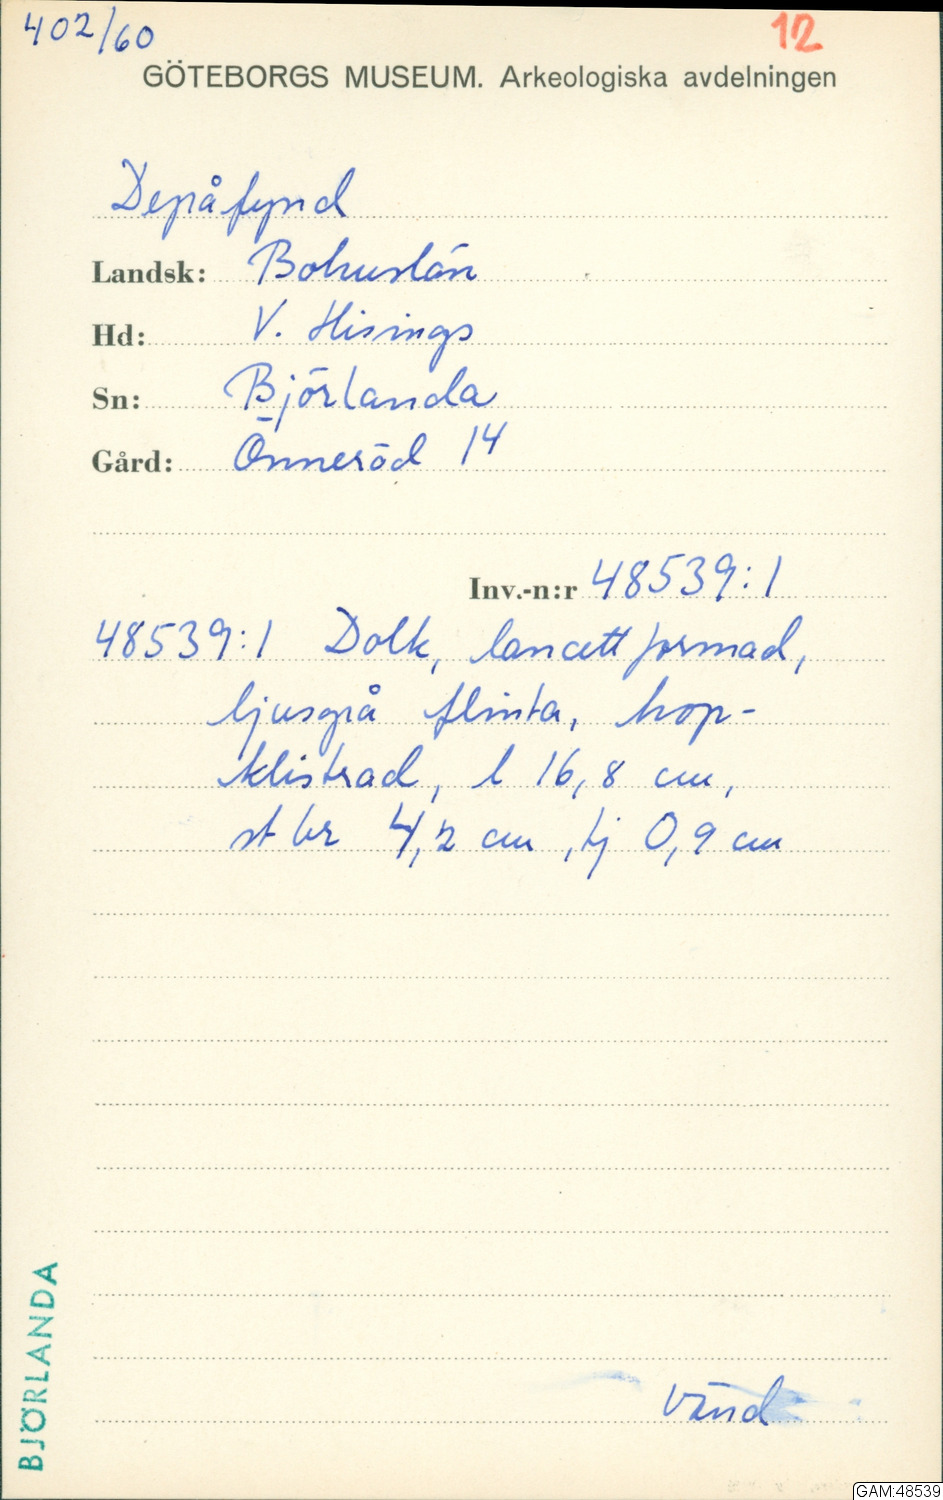 402/60
12
GÖTEBORGS MUSEUM. Arkeologiska avdelningen
Depåfynd
Landsk: Bohuslän
Hd: V. Hisings
Sn: Björlanda
Gård: Önneröd 14
Inv.-n:r 48539:1
48539:1 Dolk, lancettformad,
ljusgrå flinta, hop-
klistrad, l 16,8 cm,
st br 4,2 cm, tj 0,9 cm
BJÖRLANDA
vänd
GAM:48539